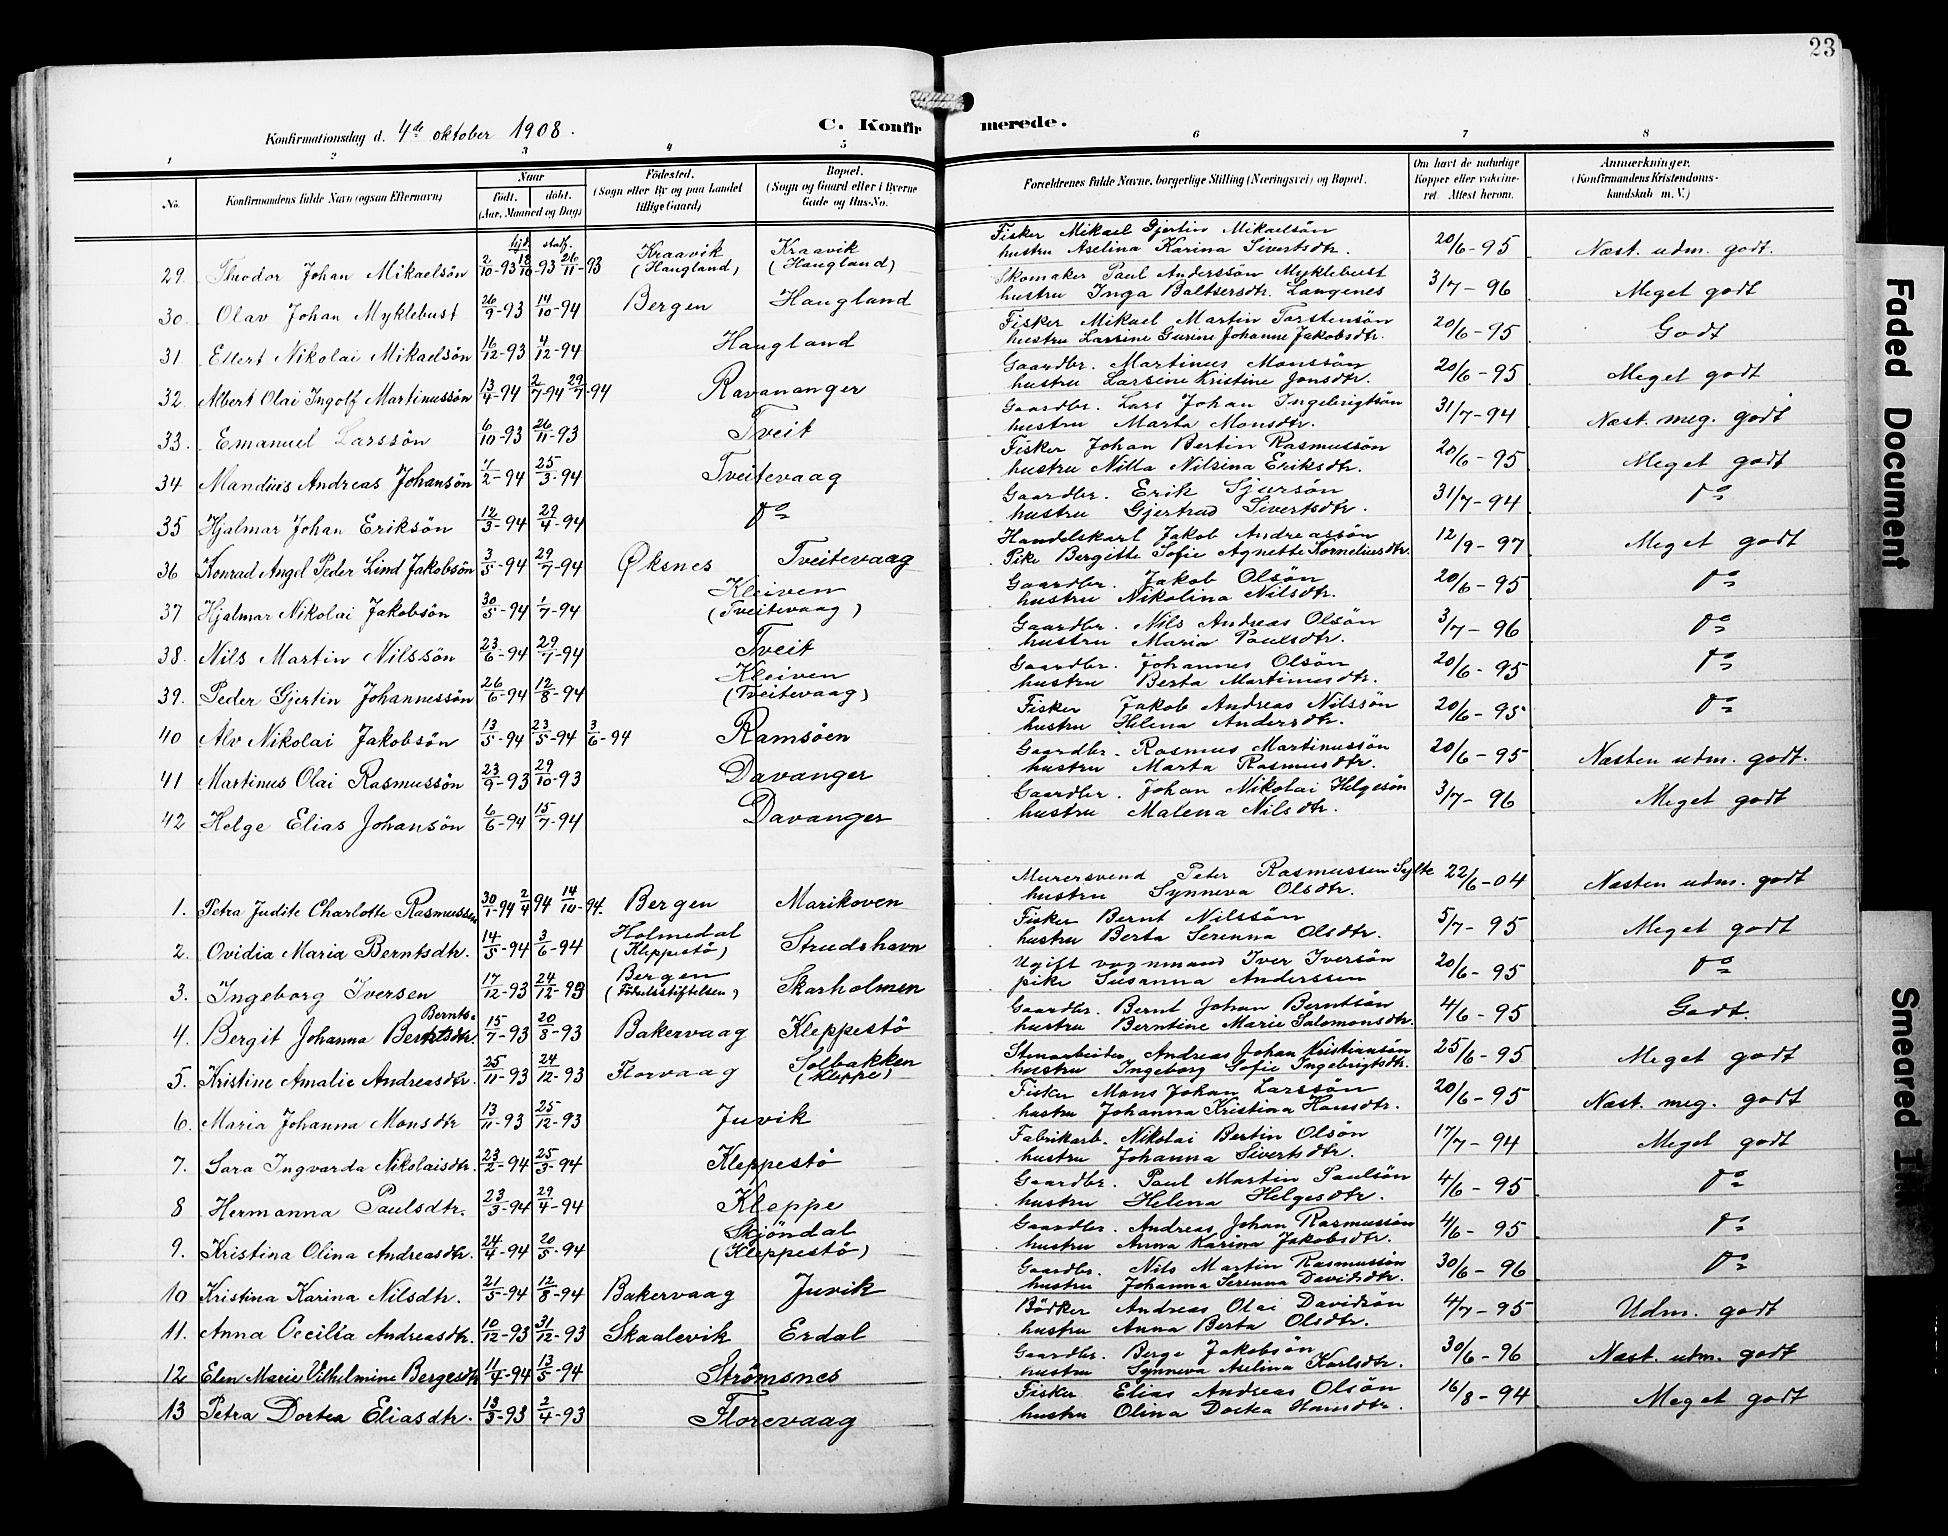 23
Konfirmationsdag d. 4de oktober 1908.
C. Konfirmerede.
1 2 3 4 5 6 7 8
No. Konfirmandens fulde Navn (ogsaa Efternavn) Naar født. døbt. (Aar, Maaned og Dag) Fødested. (Sogn eller By og paa Landet tillige Gaard) Bopæl. (Sogn og Gaard eller i Byerne Gade og Hus-No. Forældrenes fulde Navne, borgerlige Stilling (Næringsvei) og Bopæl. Om havt de naturlige Kopper eller vaccineret. Attest herom. Anmærkninger. (Konfirmandens Kristendomskundskab m. V.)
29. Theodor Johan Mikaelsön 2/10-93 hjd. 18/10-93 stadf. 26/11-93 Kraavik (Haugland) Kraavik (Haugland) Fisker Mikael Gjertin Mikaelsön hustru Aselina Karina Sivertsdtr. 20/6-95 Næst. udm. godt.
30. Olav Johan Myklebust 26/9-93 14/10-94 Bergen Haugland Skomaker Paul Anderssön Myklebust hustru Inga Baltsersdtr. Langenes 3/7-96 Meget godt
31. Ellert Nikolai Mikaelsön 16/12-93 4/12-94 Haugland Fisker Mikael Martin Torstensön hustru Larsine Gurine Johanne Jakobsdtr. 20/6-95 Godt
32. Albert Olai Ingolf Martinussön 13/4-94 2/7-94 29/7-94 Ravananger Gaardbr. Martinus Monssön hustru Larsine Kristine Jonsdtr. 20/6-95 Meget godt
33. Emanuel Larssön 6/10-93 26/11-93 Tveit Gaardbr. Lars Johan Ingebrigtsön hustru Marta Monsdtr. 31/7-94 Næst. meg. godt
34 Mandius Andreas Johansön 7/2-94 25/3-94 Tveitevaag Fisker Johan Bertin Rasmussön hustru Nilla Nilsina Eriksdtr. 20/6-95 Meget godt
35 Hjalmar Johan Eriksön 12/3-94 29/4-94 do Gaardbr. Erik Sjursön hustru Gjertrud Sivertsdtr. 31/7-94 do
36 Konrad Angel Peder Lind Jakobsön 3/5-94 29/7-94 Øksnes Tveitevaag Handelskarl Jakob Andreassön Pike Bergitte Sofie Agnette Korneliusdtr. 12/9-97 Meget godt
37 Hjalmar Nikolai Jakobsön 30/5-94 1/7-94 Kleiven (Tveitevaag) Gaardbr. Jakob Olsön hustru Nikolina Nilsdtr. 20/6-95 do
38. Nils Martin Nilssön 23/6-94 29/7-94 Tveit Gaardbr. Nils Andreas Olsön hustru Maria Paulsdtr. 3/7-96 do
39. Peder Gjertin Johannessön 26/6-94 12/8-94 Kleiven (Tveitevaag) Gaardbr. Johannes Olsön hustru Berta Martinusdtr. 20/6-95 do
40 Alv Nikolai Jakobsön 13/5-94 23/5-94 3/6-94 Ramsöen Fisker Jakob Andreas Nilssön hustru Helena Andersdtr. 20/6-95 do
41 Martinus Olai Rasmussön 23/9-93 29/10-93 Davanger Gaardbr. Rasmus Martinussön hustru Marta Rasmusdtr. 20/6-95 Næsten udm. godt.
42 Helge Elias Johansön 6/6-94 15/7-94 Davanger Gaardbr. Johan Nikolai Helgesön hustru Malena Nilsdtr. 3/7-96 Meget godt
1. Petra Judite Charlotte Rasmussen 30/1-94 2/4 94 14/10-94. Bergen Marikoven Murersvend Peter Rasmussen Sylte hustru Synneva Olsdtr. 22/6-04 Næsten udm. godt
2. Ovidia Maria Berntsdtr. 14/5-94 3/6-94 Holmedal (Kleppestö) Strudshavn Fisker Bernt Nilssön hustru Berta Serenna Olsdtr. 5/7-95 Meget godt
3. Ingeborg Iversen 17/12-93 24/12-93 Bergen (Födselsstiftelsen) Skarholmen Ugift vognmand Iver Iversön pike Susanna Anderssen 20/6-95 do
4. Bergit Johanna Berntsdtr. Bernts. 15/7-93 20/8-93 Bakervaag Kleppestö Gaardbr. Bernt Johan Berntsön hustru Berntine Marie Salomonsdtr. 4/6-95 Godt.
5. Kristine Amalie Andreasdtr. 25/11-93 24/12-93 Florvaag Solbakken (Kleppe) Stenarbeider Andreas Johan Kristiansön hustru Ingeborg Sofie Ingebrigtsdtr. 25/6-95 Meget godt
6. Maria Johanna Monsdtr 13/11-93 25/12-93 Juvik Fisker Mons Johan Larssön hustru Johanna Kristina Hansdtr. 20/6-95 Næst. meg. godt
7. Sara Ingvarda Nikolaisdtr. 23/2-94 25/3-94 Kleppestö Fabrikarb. Nikolai Bertin Olsön hustru Johanna Sivertsdtr. 17/7-94 Meget godt
8 Hermanna Paulsdtr. 23/3-94 29/4-94 Kleppe Gaardbr. Paul Martin Paulsön hustru Helena Helgesdtr. 4/6-95 do
9. Kristina Olina Andreasdtr. 24/4-94 20/5-94 Skjöndal (Kleppestö) Gaardbr. Andreas Johan Rasmussön hustru Anna Karina Jakobsdtr. 4/6-95 do
10 Kristina Karina Nilsdtr. 21/5-94 12/8-94 Bakervaag Juvik Gaardbr. Nils Martin Rasmussön hustru Johanna Serenna Davidsdtr. 30/6-96 do
11. Anna Cecilia Andreasdtr. 10/12-93 31/12-93 Skaalevik Erdal Bödker Andreas Olai Davidsön hustru Anna Berta Olsdtr. 4/7-95 Udm. godt
12 Elen Marie Vilhelmine Bergesdtr 11/4-94 13/5-94 Strömsnes Gaardbr. Berge Jakobsön hustru Synneva Aselina Karlsdtr. 30/6-96 Næst. udm. godt
13 Petra Dortea Eliasdtr. 13/3-93 2/4-93 Florevaag Fisker Elias Andreas Olsön hustru Olina Dortea Hansdtr. 16/8-94 Meget godt
Faded Document
Smeared Ink